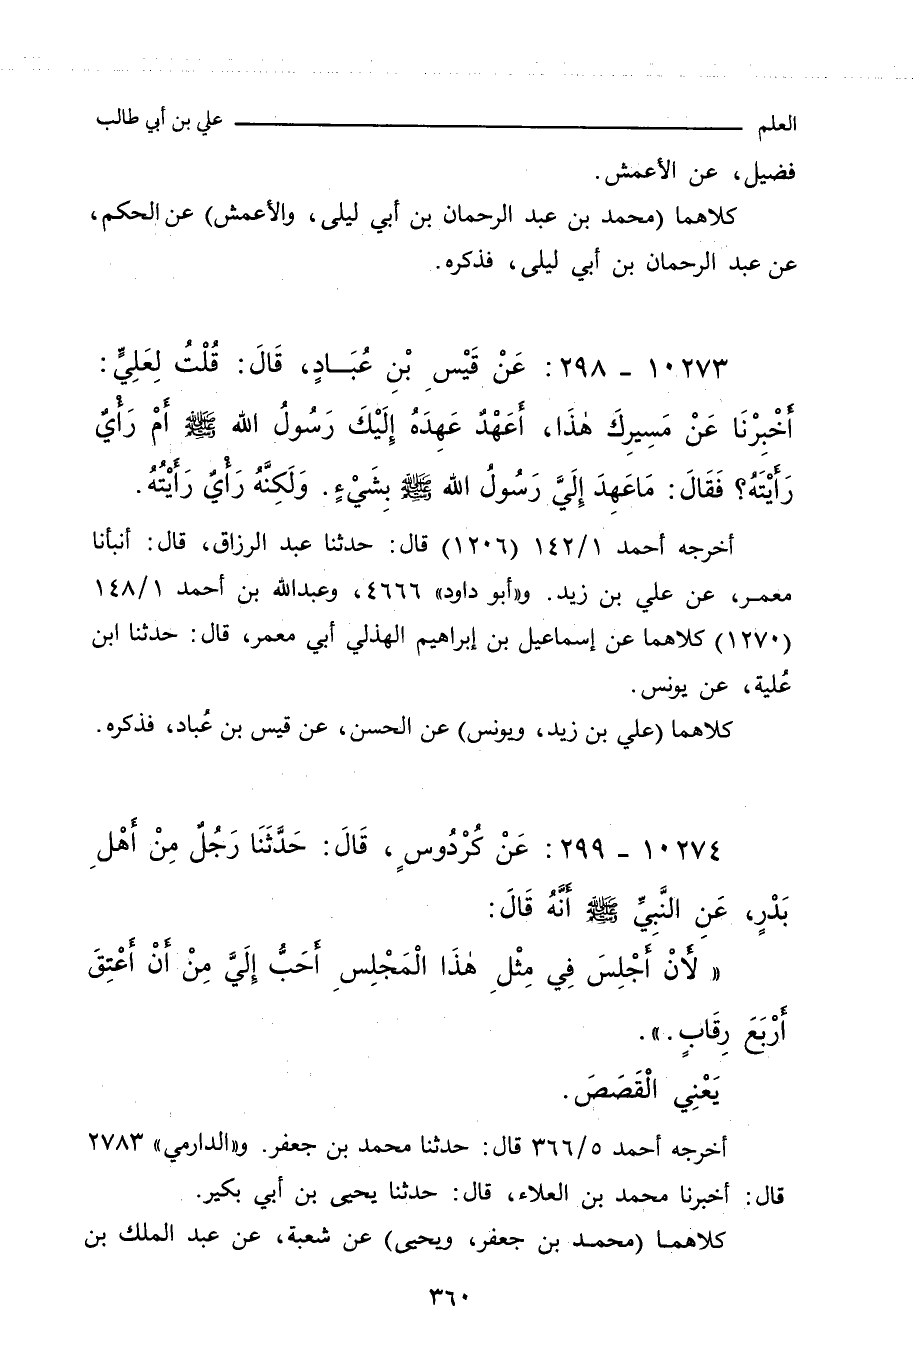 العلم ــــــــــــــــ علي بن أبي طالب
فضيل، عن الأعمش.
كلاهما (محمد بن عبد الرحمان بن أبي ليلى، والأعمش) عن الحكم،
عن عبد الرحمان بن أبي ليلى، فذكره.
١٠٢٧٣ - ٢٩٨: عَنْ قَيْسِ بْنِ عُبَــادٍ، قَالَ: قُلْتُ لِعَلِيٍّ:
أَخْبِرْنَا عَنْ مَسِيرِكَ هٰذَا، أَعَهْدٌ عَهِدَهُ إِلَيْكَ رَسُولُ الله ﷺ أَمْ رَأْيٌ
رَأَيْتَهُ؟ فَقَالَ: مَاعَهِدَ إِلَيَّ رَسُولُ الله ﷺ بِشَيْءٍ. وَلَكِنَّهُ رَأْيٌ رَأَيْتُهُ.
أخرجه أحمد ١٤٢/١ (١٢٠٦) قال: حدثنا عبد الرزاق، قال: أنبأنا
معمـر، عن علي بن زيد. و«أبو داود» ٤٦٦٦، وعبدالله بن أحمد ١٤٨/١
(١٢٧٠) كلاهما عن إسماعيل بن إبراهيم الهذلي أبي معمر، قال: حدثنا ابن
عُلية، عن يونس.
كلاهما (علي بن زيد، ويونس) عن الحسن، عن قيس بن عُباد، فذكره.
١٠٢٧٤ - ٢٩٩: عَنْ كُرْدُوسٍ، قَالَ: حَدَّثَنَا رَجُلٌ مِنْ أَهْلِ
بَدْرٍ، عَنِ النَّبِيِّ ﷺ أَنَّهُ قَالَ:
« لَأَنْ أَجْلِسَ فِي مِثْلِ هٰذَا الْمَجْلِسِ أَحَبُّ إِلَيَّ مِنْ أَنْ أَعْتِقَ
أَرْبَعَ رِقَابٍ.».
يَعْنِي الْقَصَصَ.
أخرجه أحمد ٣٦٦/٥ قال: حدثنا محمد بن جعفر. و«الدارمي» ٢٧٨٣
قال: أخبرنا محمد بن العلاء، قال: حدثنا يحيى بن أبي بكير.
كلاهمـا (محمـد بن جعفر، ويحيى) عن شعبة، عن عبد الملك بن
٣٦٠